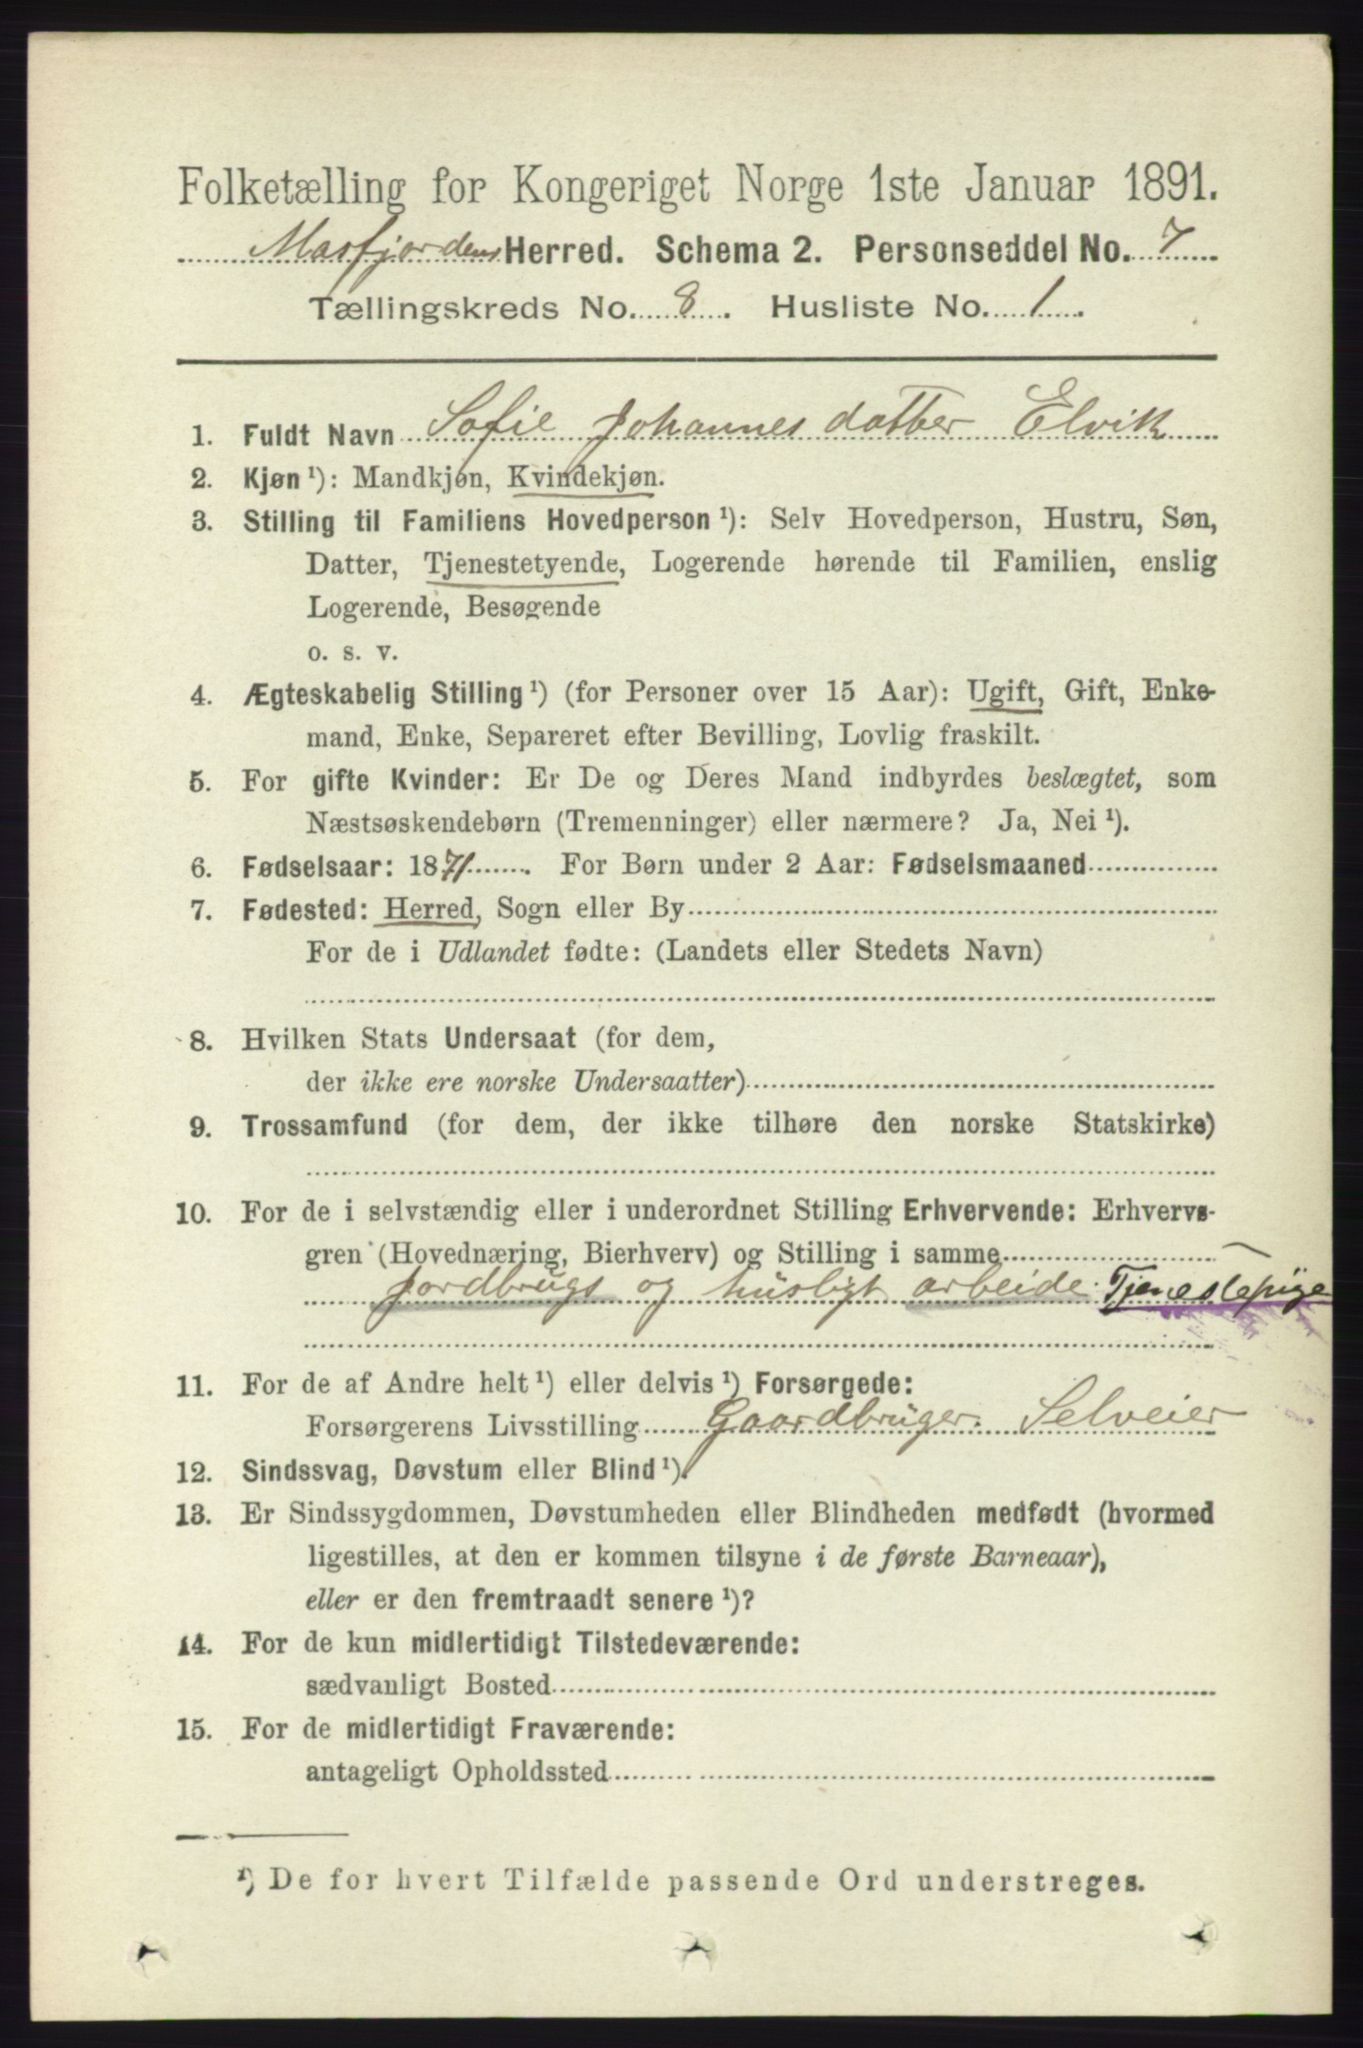 Folketælling for Kongeriget Norge 1ste Januar 1891.
Masfjordens Herred. Schema 2. Personseddel No. 7
Tællingskreds No. 8. Husliste No. 1.
1. Fuldt Navn Sofie Johannesdatter Elvik
2. Kjøn ¹): Mandkjøn, Kvindekjøn.
3. Stilling til Familiens Hovedperson ¹): Selv Hovedperson, Hustru, Søn,
Datter, Tjenestetyende, Logerende hørende til Familien, enslig
Logerende, Besøgende
o. s. v.
4. Ægteskabelig Stilling ¹) (for Personer over 15 Aar): Ugift, Gift, Enke-
mand, Enke, Separeret efter Bevilling, Lovlig fraskilt.
5. For gifte Kvinder: Er De og Deres Mand indbyrdes beslægtet, som
Næstsøskendebørn (Tremenninger) eller nærmere? Ja, Nei ¹).
6. Fødselsaar: 1871. For Børn under 2 Aar: Fødselsmaaned
7. Fødested: Herred, Sogn eller By
For de i Udlandet fødte: (Landets eller Stedets Navn)
8. Hvilken Stats Undersaat (for dem,
der ikke ere norske Undersaatter)
9. Trossamfund (for dem, der ikke tilhøre den norske Statskirke)
10. For de i selvstændig eller i underordnet Stilling Erhvervende: Erhvervs-
gren (Hovednæring, Bierhverv) og Stilling i samme
Jordbrugs og husligt arbeide. Tjenestepige
11. For de af Andre helt ¹) eller delvis ¹) Forsørgede:
Forsørgerens Livsstilling Gaardbruger. Selveier
12. Sindssvag, Døvstum eller Blind ¹).
13. Er Sindssygdommen, Døvstumheden eller Blindheden medfødt (hvormed
ligestilles, at den er kommen tilsyne i de første Barneaar),
eller er den fremtraadt senere ¹)?
14. For de kun midlertidigt Tilstedeværende:
sædvanligt Bosted
15. For de midlertidigt Fraværende:
antageligt Opholdssted
¹) De for hvert Tilfælde passende Ord understreges.